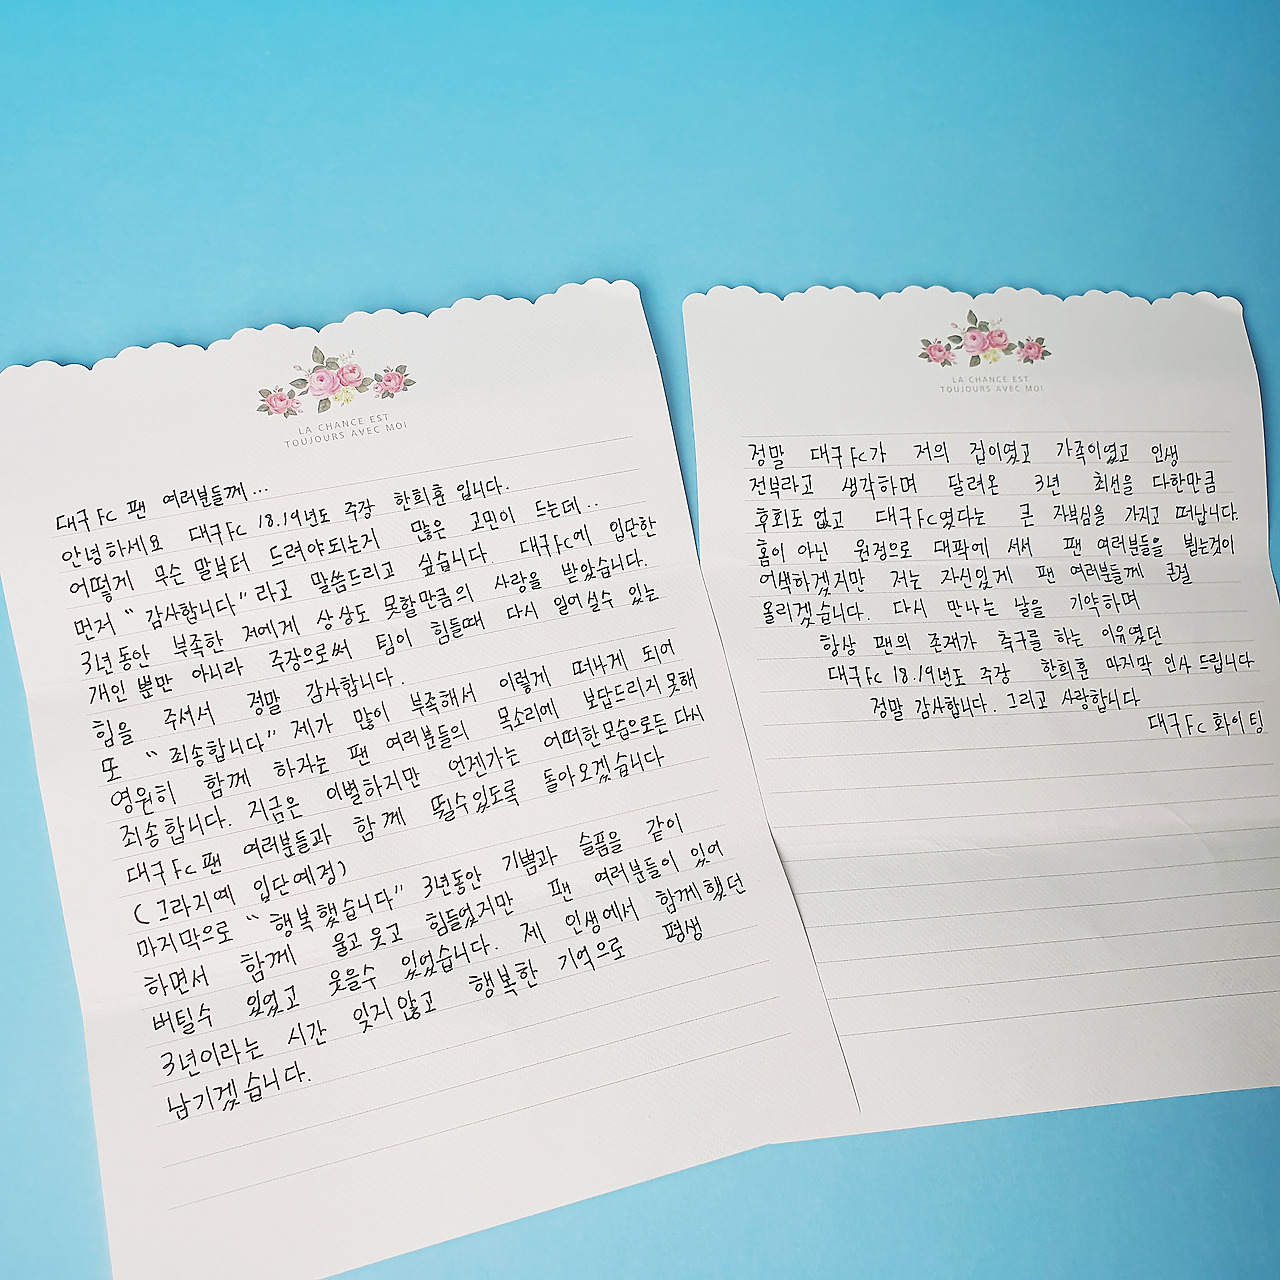 LA CHANCE EST
TOUJOURS AVEC MOI
대구FC 팬 여러분들께...
안녕하세요 대구FC 18.19년도 주장 한희훈 입니다.
어떻게 무슨 말부터 드려야되는지 많은 고민이 드는데..
먼저 "감사합니다"라고 말씀드리고 싶습니다. 대구FC에 입단한
3년동안 부족한 저에게 상상도 못할만큼의 사랑을 받았습니다.
개인 뿐만 아니라 주장으로써 팀이 힘들때 다시 일어설수 있는
힘을 주셔서 정말 감사합니다.
또 "죄송합니다" 제가 많이 부족해서 이렇게 떠나게 되어
영원히 함께 하자는 팬 여러분들의 목소리에 보답드리지 못해
죄송합니다. 지금은 이별하지만 언젠가는 어떠한 모습으로든 다시
대구FC팬 여러분들과 함께 뛸수있도록 돌아오겠습니다
(그라지예 입단예정)
마지막으로 "행복했습니다" 3년동안 기쁨과 슬픔을 같이
하면서 함께 울고 웃고 힘들었지만 팬 여러분들이 있어
버틸수 있었고 웃을수 있었습니다. 제 인생에서 함께했던
3년이라는 시간 잊지않고 행복한 기억으로 평생
남기겠습니다.
LA CHANCE EST
TOUJOURS AVEC MOI
정말 대구FC가 저의 집이였고 가족이였고 인생
전부라고 생각하며 달려온 3년 최선을 다한만큼
후회도 없고 대구FC였다는 큰 자부심을 가지고 떠납니다.
홈이 아닌 원정으로 대팍에 서서 팬 여러분들을 뵙는것이
어색하겠지만 저는 자신있게 팬 여러분들께 큰절
올리겠습니다. 다시 만나는 날을 기약하며
항상 팬의 존재가 축구를 하는 이유였던
대구FC 18.19년도 주장 한희훈 마지막 인사 드립니다
정말 감사합니다. 그리고 사랑합니다
대구FC 화이팅